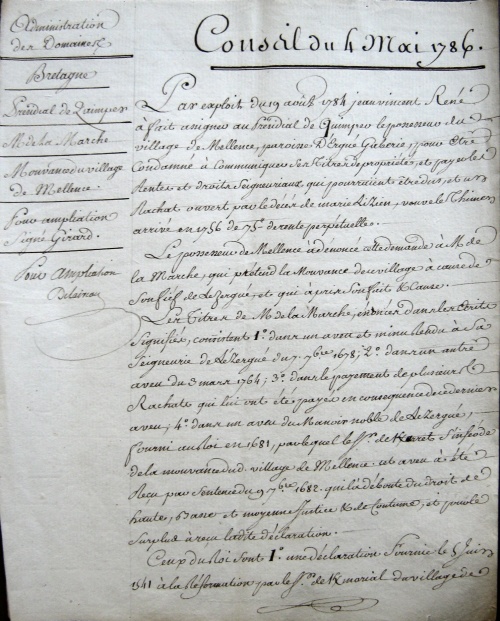 Administration
des Domaines
Bretagne
Présidial de Quimper
M. de la Marche
Mouvance du village
de Mellence.
Pour ampliation
Signé Girard.
Pour Ampliation
Conseil du 4 Mai 1786.
Par exploit du 19 août 1784 jean vincent René
à fait assigné au Présidial de Quimper le possesseur du
village de Mellence, paroisse d'Ergué Gaberic, pour être
Condamné à Communiquer ses Titres de propriétés, et payer les
Rentes et droits Seigneuriaux qui pourraient être dus, et un
Rachat ouvert par le décès de marie Lizien, veuve le
arrivé en 1756 de 75# de rente perpétuelle.
Le possesseur de Mellence a dénoncé cette demande à M. de
la Marche, qui prétend la Mouvance du village à cause de
Son fief de Lezergué, et qui à pris Son fait & Cause.
Les Titres de M. de la Marche, énoncés dans les Ecrits
Signifiés, consistent 1° dans un aveu et minu Rendu à Sa
Seigneurie de Lezergué du 7 7bre 1678; 2° dans un autre
aveu du 3 mars 1764; 3° dans le payement de plusieurs
Rachats qui lui ont été payés en consequence de ce dernier
aveu; 4° dans un aveu du Manoir noble de Lezergué,
fourni au Roi en 1681, par lequel le Sr. de Kveret S'inféode
de la mouvance dud. village de Mellence. cet aveu à été
Reçu par Sentence du 9 7bre 1682. qui l'a débouté du droit de
haute, Basse et moyenne Justice & de Coutume, et pour le
Surplus à reçu ladite déclaration.
Ceux du Roi Sont 1°. une déclaration fournie le 5 Juin
1541 à la Réformation par le Sr. de Kmorial du village de